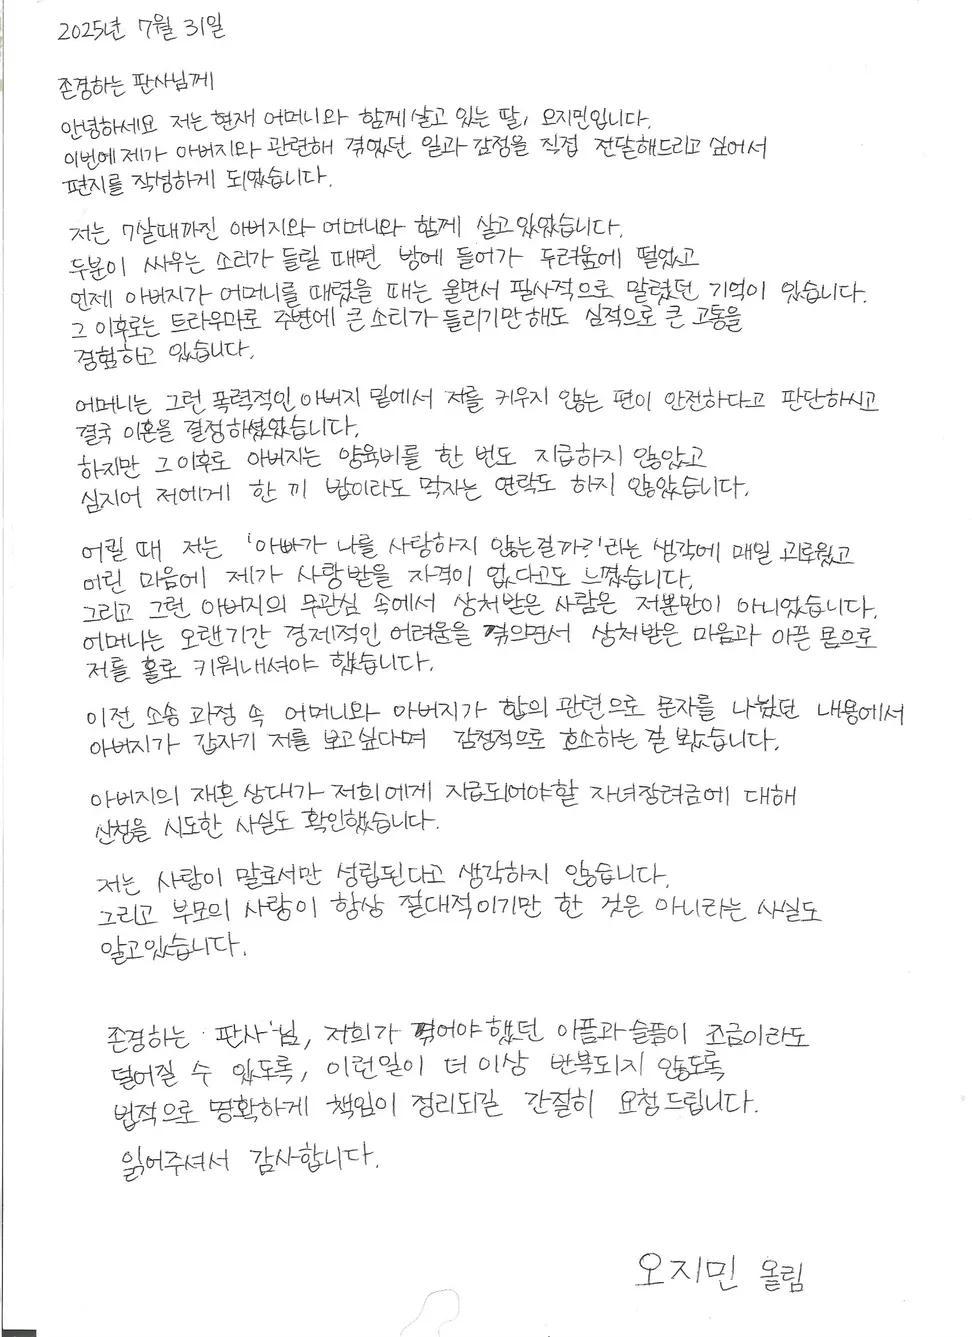 2025년 7월 31일
존경하는 판사님께
안녕하세요 저는 현재 어머니와 함께 살고 있는 딸, 오지민입니다.
이번에 제가 아버지와 관련해 겪었던 일과 감정을 직접 전달해드리고 싶어서
편지를 작성하게 되었습니다.
저는 7살때까진 아버지와 어머니와 함께 살고있었습니다.
두분이 싸우는 소리가 들릴 때면 방에 들어가 두려움에 떨었고
언제 아버지가 어머니를 때렸을 때는 울면서 필사적으로 말렸던 기억이 있습니다.
그 이후로는 트라우마로 주변에 큰 소리가 들리기만 해도 심적으로 큰 고통을
경험하고 있습니다.
어머니는 그런 폭력적인 아버지 밑에서 저를 키우지 않는 편이 안전하다고 판단하시고
결국 이혼을 결정하셨었습니다.
하지만 그 이후로 아버지는 양육비를 한 번도 지급하지 않았고
심지어 저에게 한 끼 밥이라도 먹자는 연락도 하지 않았습니다.
어릴 때 저는 '아빠가 나를 사랑하지 않는걸까?'라는 생각에 매일 괴로웠고
어린 마음에 제가 사랑받을 자격이 없다고도 느꼈습니다.
그리고 그런 아버지의 무관심 속에서 상처받은 사람은 저뿐만이 아니었습니다.
어머니는 오랜기간 경제적인 어려움을 겪으면서 상처받은 마음과 아픈 몸으로
저를 홀로 키워내셔야 했습니다.
이전 소송 과정 속 어머니와 아버지가 합의 관련으로 문자를 나눴던 내용에서
아버지가 갑자기 저를 보고싶다며 감정적으로 호소하는 걸 봤습니다.
아버지의 재혼 상대가 저희에게 지급되어야할 자녀장려금에 대해
신청을 시도한 사실도 확인했습니다.
저는 사랑이 말로서만 성립된다고 생각하지 않습니다.
그리고 부모의 사랑이 항상 절대적이기만 한 것은 아니라는 사실도
알고있습니다.
존경하는 판사님, 저희가 겪어야 했던 아픔과 슬픔이 조금이라도
덜어질 수 있도록, 이런일이 더 이상 반복되지 않도록
법적으로 명확하게 책임이 정리되길 간절히 요청드립니다.
읽어주셔서 감사합니다.
오지민 올림